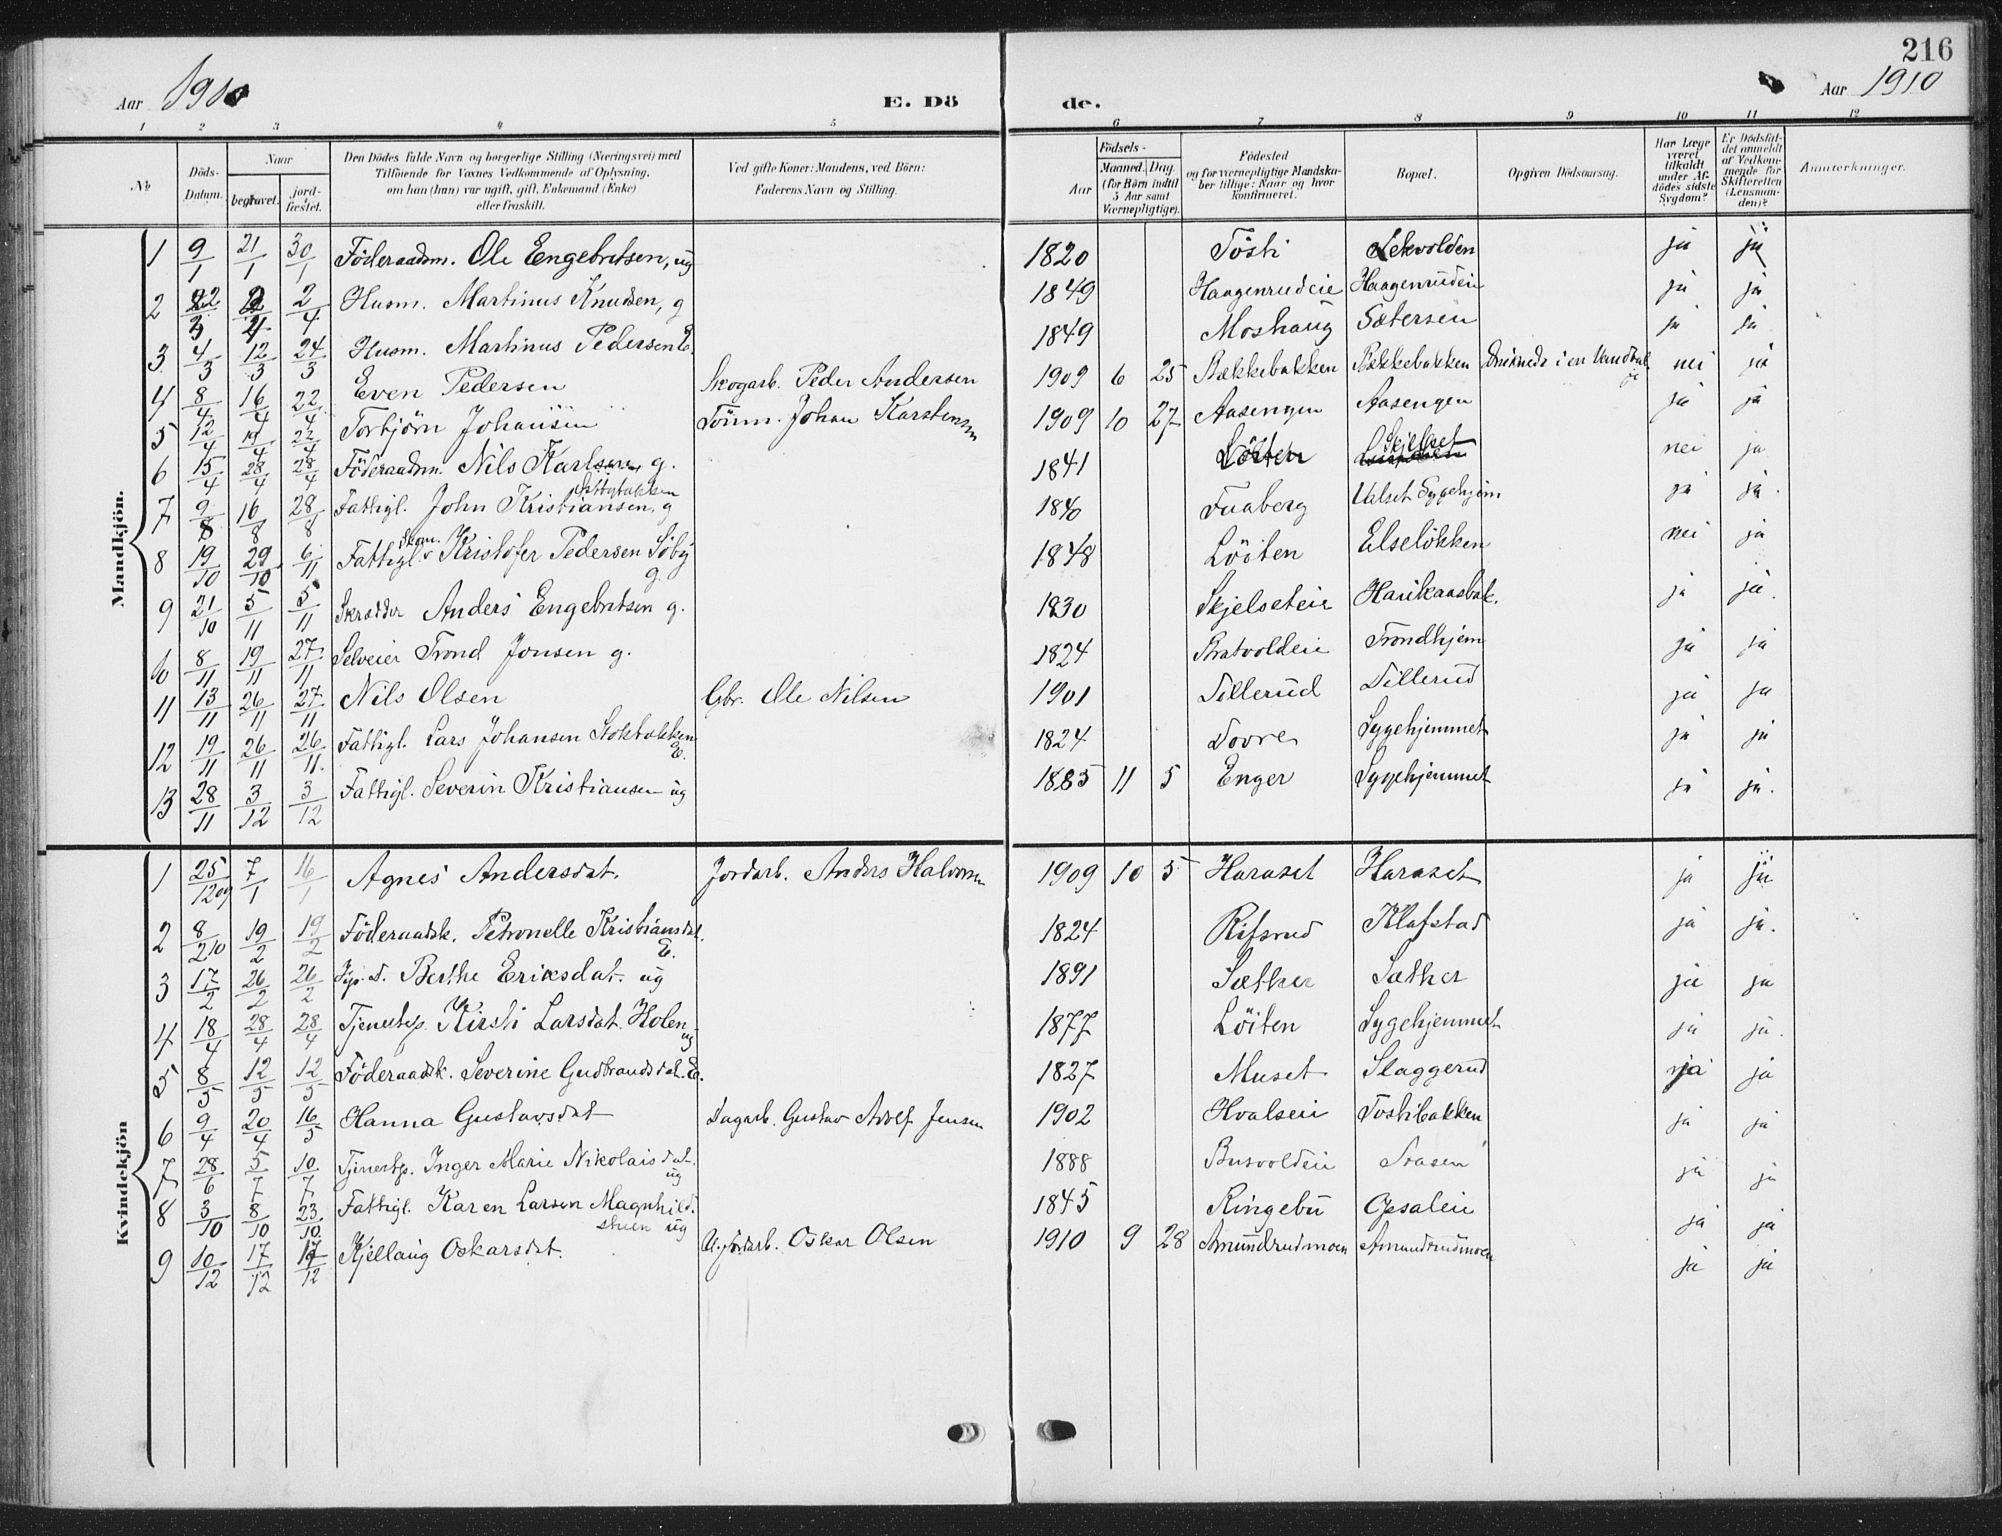 216
Aar 1910 E. Dö de. Aar 1910
1 2 3 4 5 6 7 8 9 10 11 12
No
Döds-Datum.
Naar
begravet.
jord-fæstet.
Den Dödes fulde Navn og borgerlige Stilling (Næringsvei) med Tilföiende for Voxnes Vedkommende af Oplysning, om han (hun) var ugift, gift, Enkemand (Enke) eller fraskilt.
Ved gifte Koner: Mandens, ved Börn: Faderens Navn og Stilling.
Födsels-
Aar
Maaned. Dag.
(for Börn indtil 5 Aar samt Værnepligtige).
Födested og for værnepligtige Mandskaber tillige: Naar og hvor konfirmeret.
Bopæl.
Opgiven Dödsaarsag.
Har Læge været tilkaldt under Afdödes sidste Sygdom?
Er Dödsfaldet anmeldt af Vedkommende for Skifteretten (Lensmanden)?
Anmerkninger.
Mandkjön.
1 9/1 21/1 30/1 Föderaadsm. Ole Engebretsen, ug 1820 Tosti Lekvolden ja ja
2 22/3 2/4 2/4 Husm. Martinus Knudsen, g 1849 Haagenrudeie Haagenrudeie ja ja
3 4/3 12/3 24/3 Husm. Martinus Pedersen E. 1849 Moshaug Sætersen ja ja
4 8/4 16/4 22/4 Even Pedersen Skogarb. Peder Andersen 1909 6 25 Bækkebakken Bækkebakken Druknede i en Vandbal je nei ja
5 12/4 19/4 22/4 Torbjörn Johansen Tömm. Johan Karstensen 1909 10 27 Aasengen Aasengen ja ja
6 15/4 28/4 28/4 Föderaadsm. Nils Karlsen, g. 1841 Löiten Skjelset nei ja
7 9/8 16/8 28/8 Fattigl. John Kristiansen, g 1840 Faaberg Valset Sygehjem ja ja.
8 19/10 29/10 6/11 Fattigl. Skom. Kristofer Pedersen Söby g. 1848 Löiten Elselökken nei ja
9 21/10 5/11 5/11 Skrædder Anders Engebretsen g. 1830 Skjelseteie Harikaasbak. ja ja.
10 8/11 19/11 27/11 Selveier Trond Jonsen g. 1824 Bratvoldeie Trondhjem ja ja
11 13/11 26/11 27/11 Nils Olsen Gbr. Ole Nilsen 1901 Tillerud Tillerud ja ja
12 19/11 26/11 26/11. Fattigl. Lars Johansen Stokbakken E. 1824 Dovre Sygehjemmet ja ja
13 28/11 3/12 3/12 Fattigl. Severin Kristiansen ug 1885 11 5 Enger Sygehjemmet ja ja.
Kvindekjön
1 25/12 09 7/1 16/1 Agnes Andersdat. Jordarb. Anders Halvorsen 1909 10 5 Haraset Haraset ja ja
2 8/2 10 19/2 19/2 Föderaadsk. Petronelle Kristiansdat. E. 1824 Rifsrud Klafstad ja ja.
3 17/2 26/2 26/2 Berthe Eriksdat. ug 1891 Sæther Sæther ja ja
4 18/4 28/4 28/4 Tjenestep. Kirsti Larsdat. Holen ug 1877 Löiten Sygehjemmet ja ja.
5 8/5 12/5 12/5 Föderaadsk. Severine Gudbrandsdat. E. 1827 Muset Slaggerud ja ja
6 9/4 20/4 16/5 Hanna Gustavsdat Dagarb. Gustav Adolf Jensen 1902 Hvalseie Tostibakken ja ja
7 28/6 5/7 10/7 Tjenestp. Inger Marie Nikolaisdat. ug 1888 Busvoldeie Aasen ja ja
8 3/10 8/10 23/10 Fattigl. Karen Larsen Magnhildstuen ug 1845 Ringebu Opsaleie ja ja
9 10/12 17/12 17/12 Kjellaug Oskarsdat. U. Jordarb. Oskar Olsen 1910 9 28 Amundrudmoen Amundrudmoen ja ja